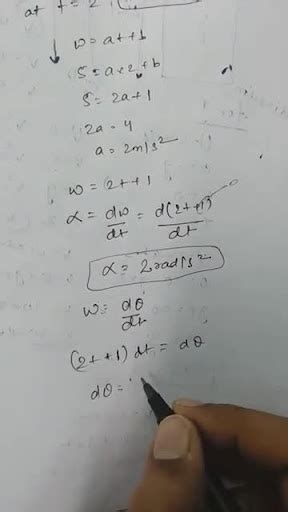 at t = 2
ω = at + b
5 = a×2 + b
5 = 2a + 1
2a = 4
a = 2m/s²
ω = 2t + 1
α = dω/dt = d(2t+1)/dt
α = 2rad/s²
ω = dθ/dt
(2t + 1) dt = dθ
dθ =